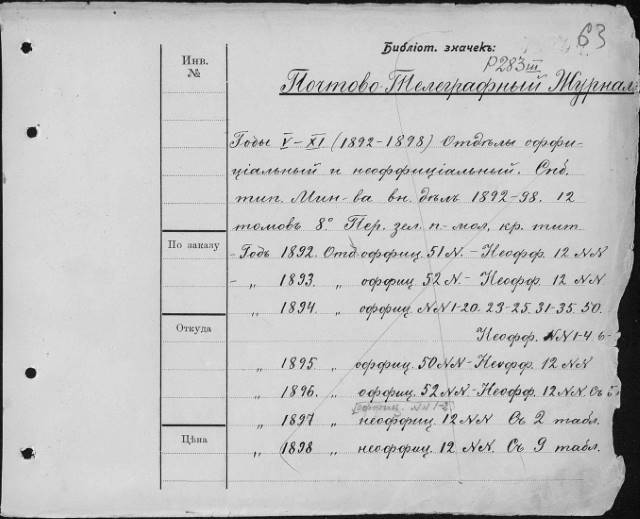 63
Библіот. значекъ:
P283III
Инв.
№
Почтово-Телеграфный Журналъ
Годы V–XI (1892–1898) Отдѣлы оффи-
ціальный и неоффиціальный. Спб.
тип. Мин-ва вн. дѣлъ 1892–98. 12
томовъ 8° Пер. зел. п-мол, кр. тит
По заказу
- Годъ 1892. Отд. оффиц. 51 N. – Неофф. 12 NN
- „ 1893. „ оффиц. 52 N. – Неофф. 12 NN
„ 1894. „ оффиц. NN 1-20. 23-25. 31-35. 50.
Откуда
Неофф. NN 1-4. 6-
„ 1895 „ оффиц. 50 NN – Неофф. 12 NN
„ 1896. „ оффиц. 52 NN. – Неофф. 12 NN. Съ
оффиц. NN 1-2
„ 1897 „ неоффиц. 12 NN Съ 2 табл.
Цѣна
„ 1898 „ неоффиц. 12 NN. Съ 9 табл.